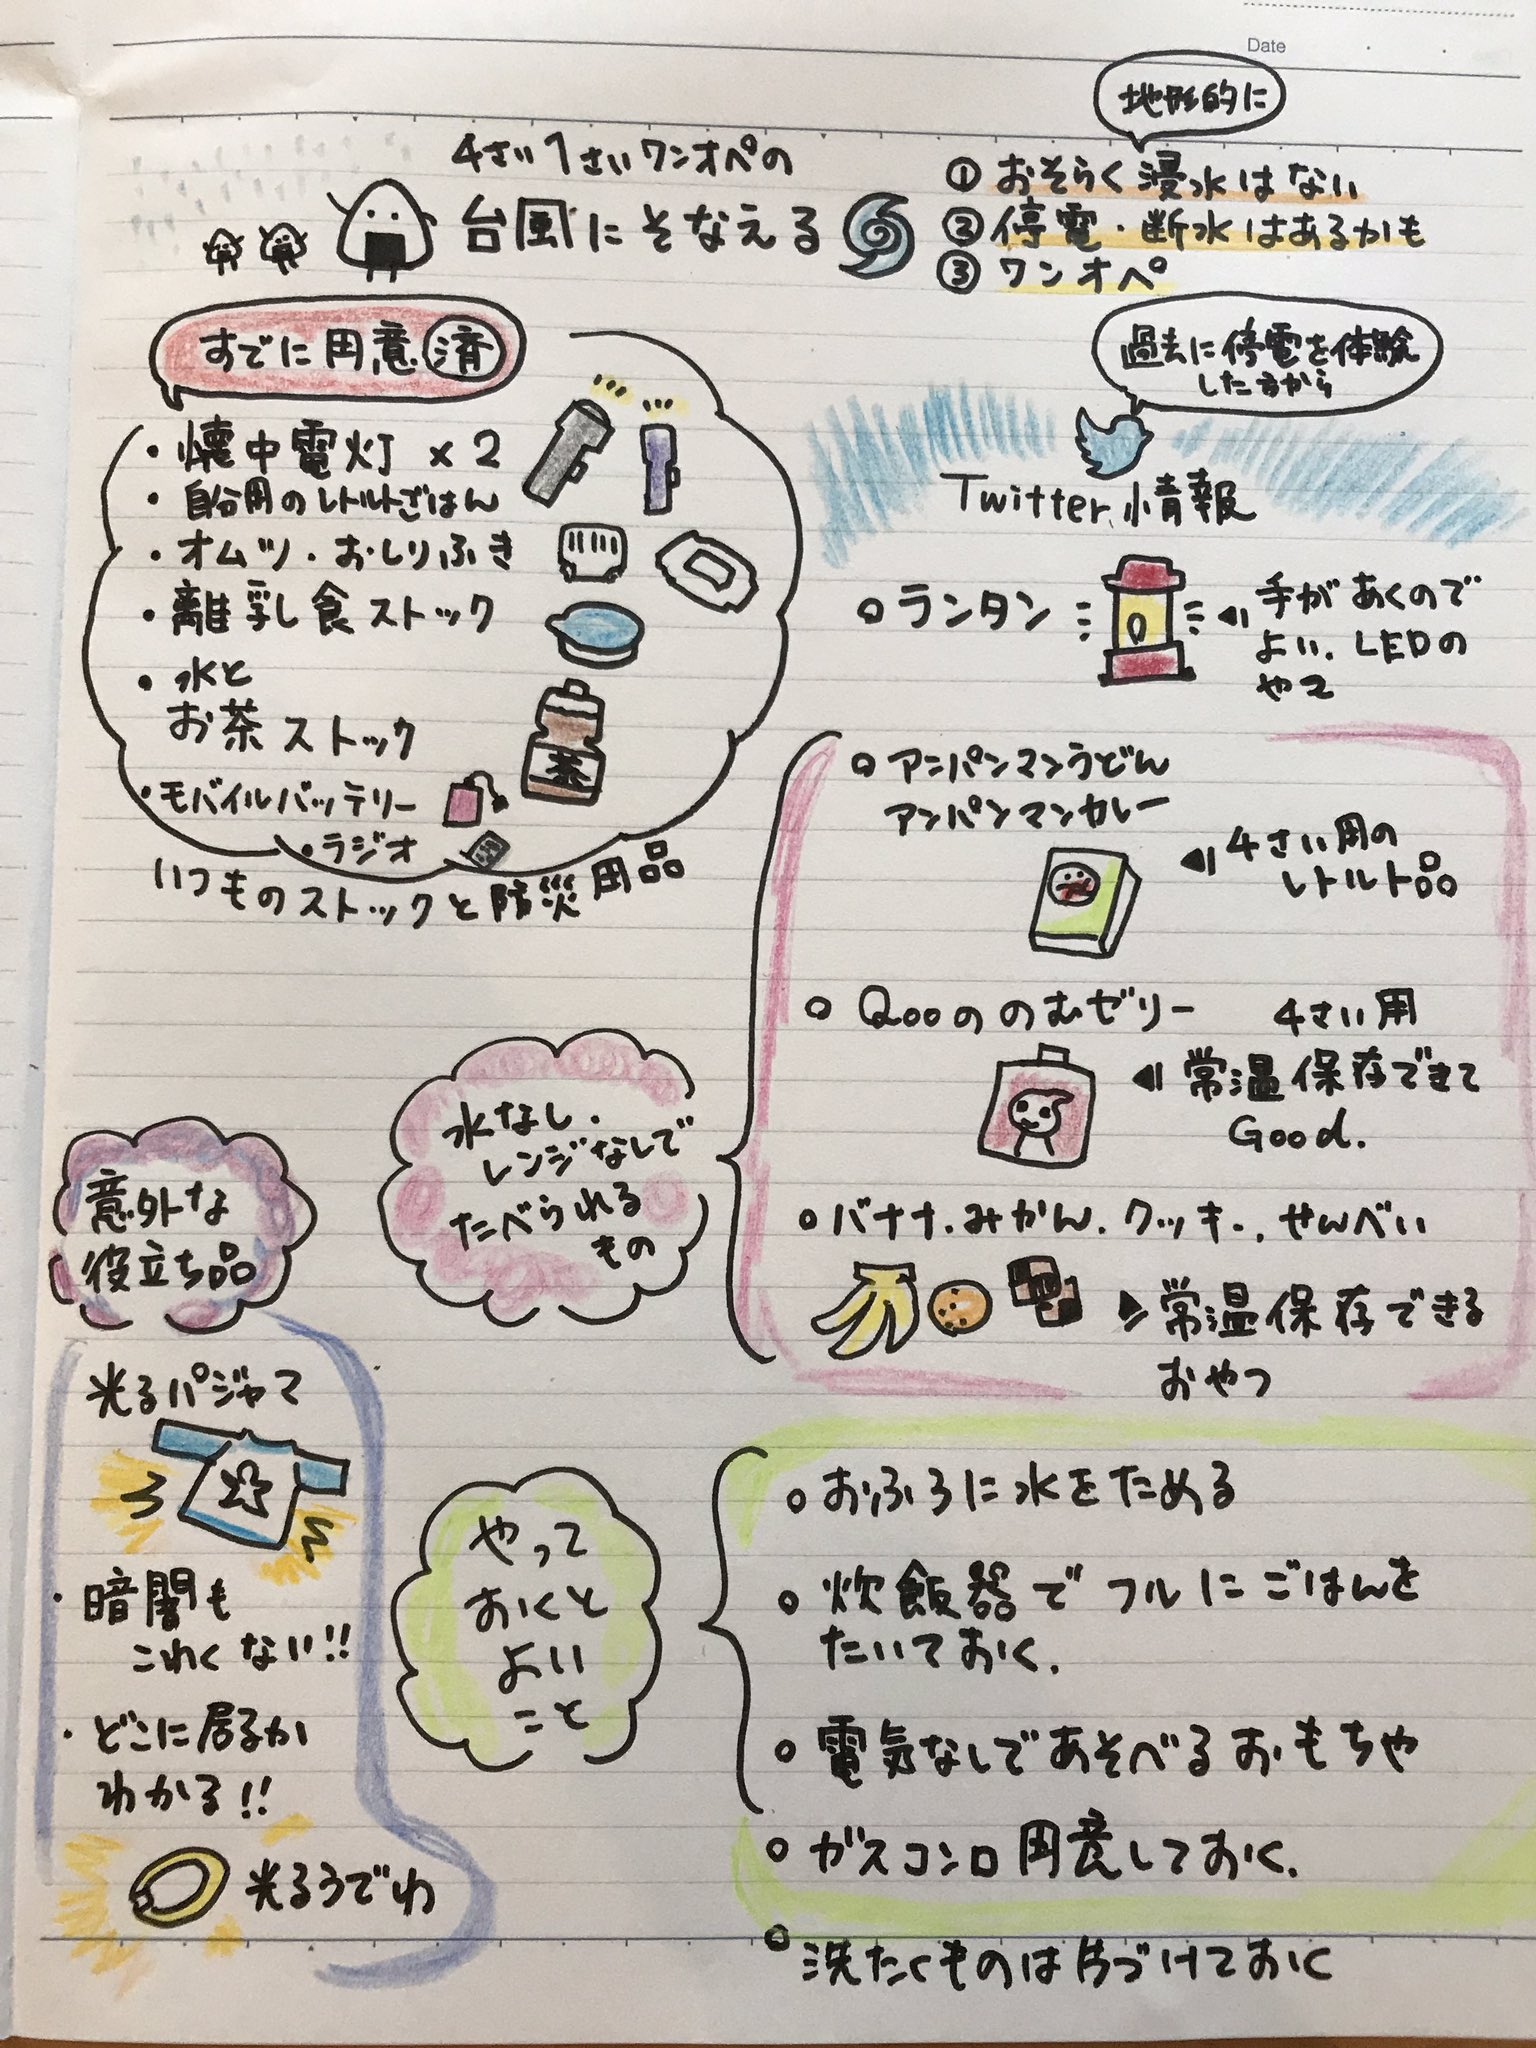 Date
4さい1さいワンオペの
台風にそなえる
地形的に
① おそらく浸水はない
② 停電・断水はあるかも
③ ワンオペ
すでに用意済
・懐中電灯 x2
・自分用のレトルトごはん
・オムツ・おしりふき
・離乳食ストック
・水と
お茶ストック
茶
・モバイルバッテリー
・ラジオ
いつものストックと防災用品
過去に停電を体験
した方から
Twitter情報
○ ランタン
手があくので
よい。LEDの
やつ
水なし・
レンジなしで
たべられる
もの
○ アンパンマンうどん
アンパンマンカレー
4さい用の
レトルト品
○ Qooののむゼリー 4さい用
常温保存できて
Good.
○ バナナ、みかん、クッキー、せんべい
常温保存できる
おやつ
意外な
役立ち品
光るパジャマ
・暗闇も
こわくない!!
・どこに居るか
わかる!!
光るうでわ
やって
おくと
よい
こと
○ おふろに水をためる
○ 炊飯器でフルにごはんを
たいておく.
○ 電気なしであそべるおもちゃ
○ ガスコンロ用意しておく.
○ 洗たくものは片づけておく